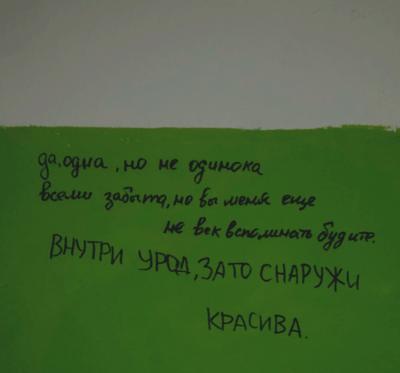 да, одна, но не одинока
всеми забыта, но вы меня еще
не век вспоминать будите.
ВНУТРИ УРОД, ЗАТО СНАРУЖИ
КРАСИВА.